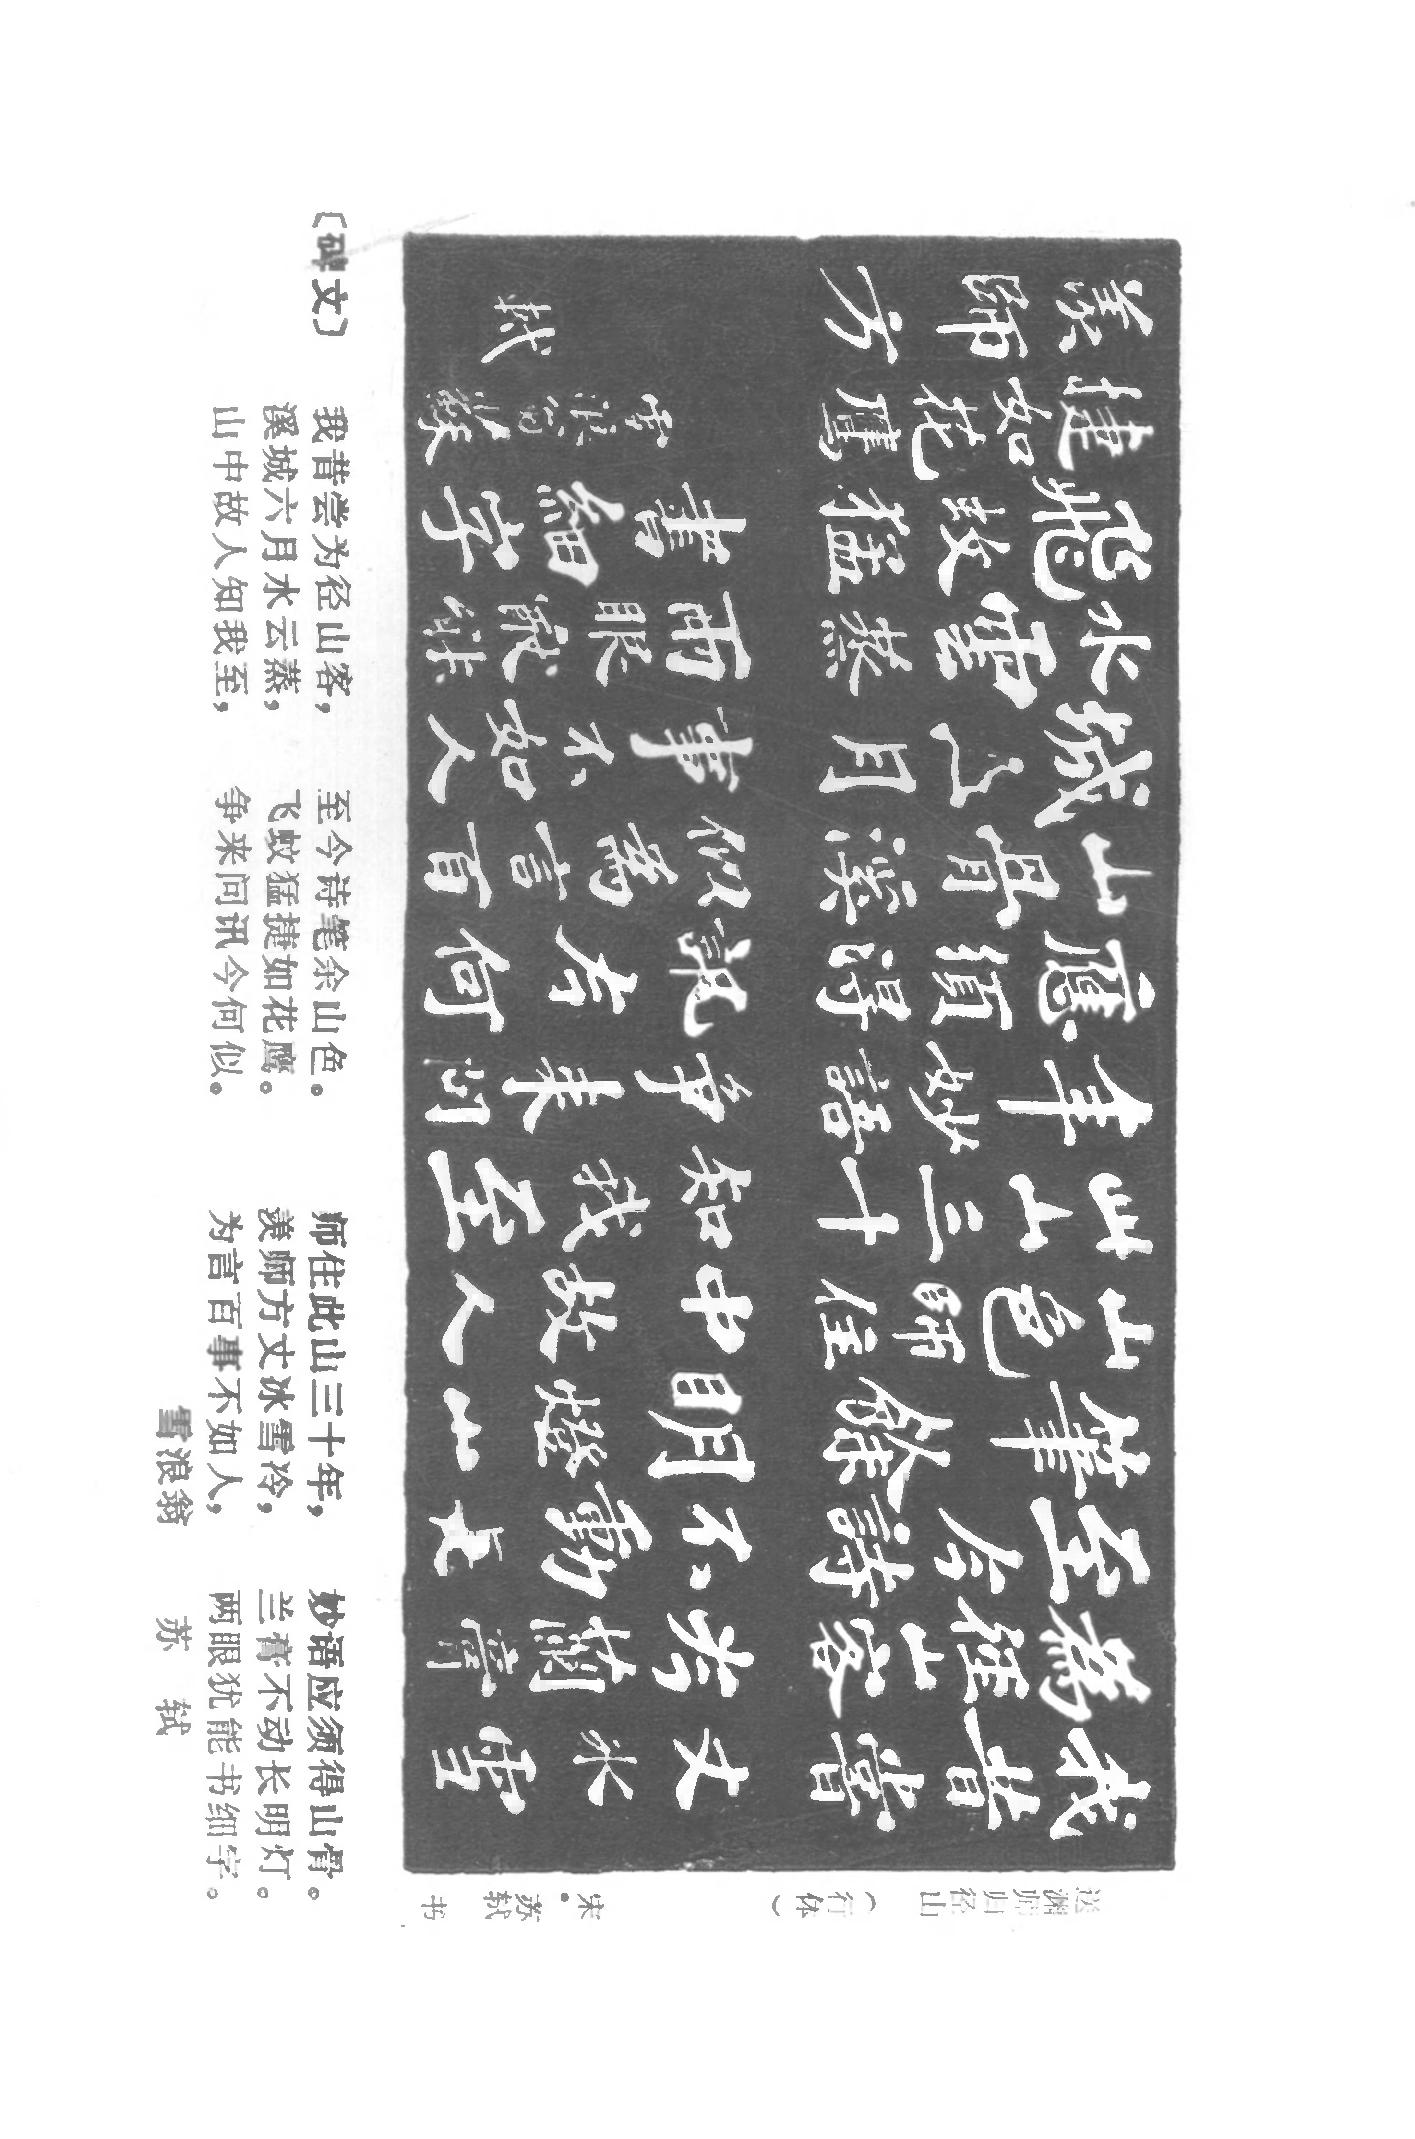 送渊师归径山 （行体） 宋·苏轼 书
我昔嘗
爲徑山客
至今詩
筆餘
山色師住
此山三十
年妙語
應須得
山骨溪
城六月
水雲蒸
飛蚊猛
捷如花鷹
羡師方
丈冰雪
冷蘭膏
不動長
明燈山
中故人
知我至
争来問
訊今何
似爲言百
事不如人
兩眼猶能
書細字
雪浪翁蘇
軾
〔碑文〕 我昔尝为径山客， 至今诗笔余山色。 师住此山三十年， 妙语应须得山骨。
溪城六月水云蒸， 飞蚊猛捷如花鹰。 羡师方丈冰雪冷， 兰膏不动长明灯。
山中故人知我至， 争来问讯今何似。 为言百事不如人， 两眼犹能书细字。
雪浪翁 苏 轼